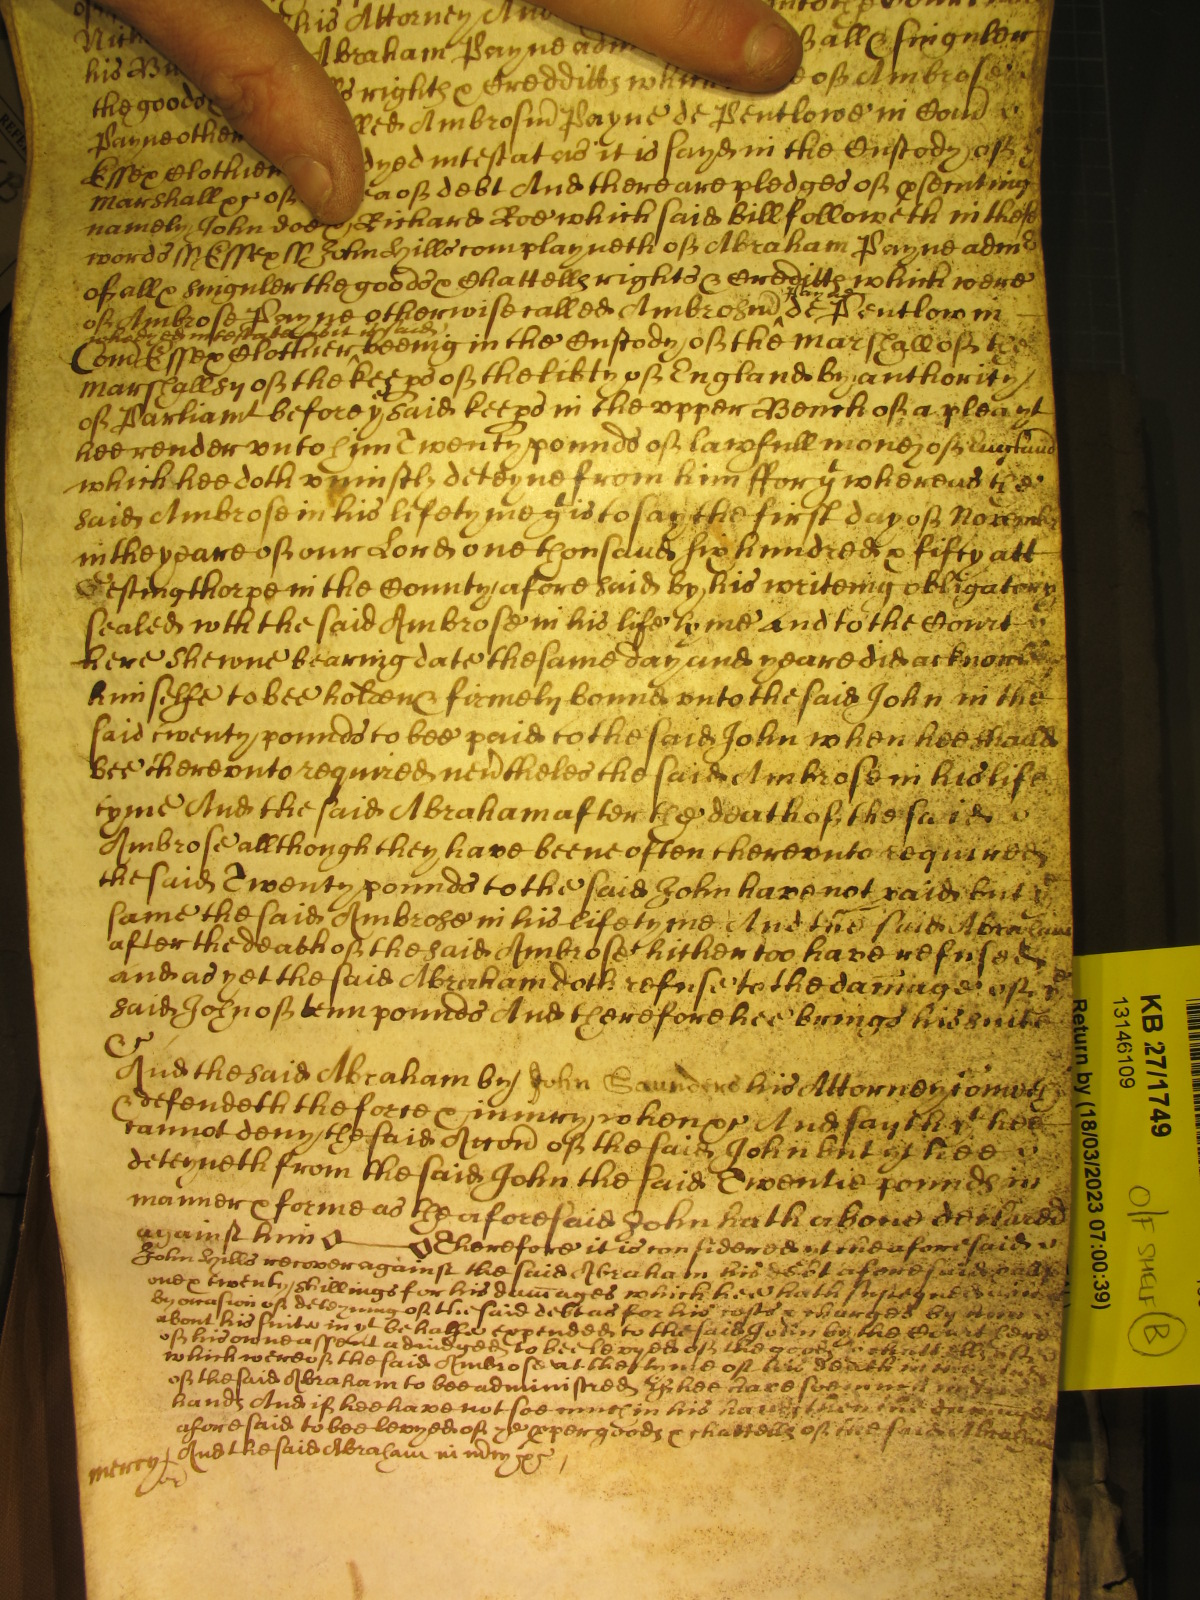 his Attorney And
Abraham Payne adm of all & singuler
the goods rights & Credditts which of Ambrose
Payne other Ambrosiu Payne de Pentlowe in Com
Essex Clothier dyed intestat as it is sayd in the Custody of y
Marshall &c of debt And there are pledges of psecuting
namely John doe & Richard Roe which said bill followeth in these
words ss Essex ss John Hills complayneth of Abraham Payne adm
of all & singuler the goods & Chattells rights & Credditts which were
of Ambrose Payne otherwise called Ambrosiu Payne de Pentlow in
who dyed intestate as it is said
Com Essex Clothier beeing in the Custody of the Marshall of the
Marshallsy of the keeps of the libty of England by authority
of Parliamt before y said keeps in the upper Bench of a plea yt
hee render unto him Twenty pounds of lawfull money of England
which hee doth uniustly deteyne from him ffor yt whereas the
said Ambrose in his lifetyme yt is to say the first day of November
in the yeare of our Lord one thousand six hundred & fifty att
Gestingthorpe in the County aforesaid by his writeing obligatory
sealed wth the said Ambrose in his life tyme and to the Court
here shewne bearing date the same day and yeare did acknowl
himselfe to bee holden & firmely bound unto the said John in the
said twenty pounds to bee paid to the said John when hee should
bee thereunto required neutheles the said Ambrose in his life
tyme And the said Abraham after the death of the said
Ambrose allthough they have beene often thereunto required
the said Twenty pounds to the said John have not paid but
same the said Ambrose in his lifetyme And the said Abraham
after the death of the said Ambrose hitherto have refused
and as yet the said Abraham doth refuse to the damage of y
said John of tenn pounds And therefore hee brings his suite
&c
And the said Abraham by John Saunders his Attorney comes
& defendeth the force & iniury when &c And saith yt hee
cannot deny the said Accon of the said John but yt hee
deteyneth from the said John the said Twentie pounds in
manner & forme as the aforesaid John hath above declared
against him Therefore it is considered yt the aforesaid
John Hills recover against the said Abraham his debt aforesaid
one & twenty shillings for his damages which hee hath susteyned
by occasion of deteyning of the said debt as for his costs & charges by him
about his suite in yt behalfe expended to the said John by the Court here
of his owne assent adiudged to bee levyed of the goods & chattells
which were of the said Ambrose at the tyme of his death in the
of the said Abraham to bee administred if hee have soe much in
hands And if hee have not soe much in his hands then the damages
aforesaid to bee levyed of ye pper goods & chattells of the said Abraham
mercy And the said Abraham in mcy &c
KB 27/1749
13146109
Return by (18/03/2023 07:00:39)
O/F SHELF B